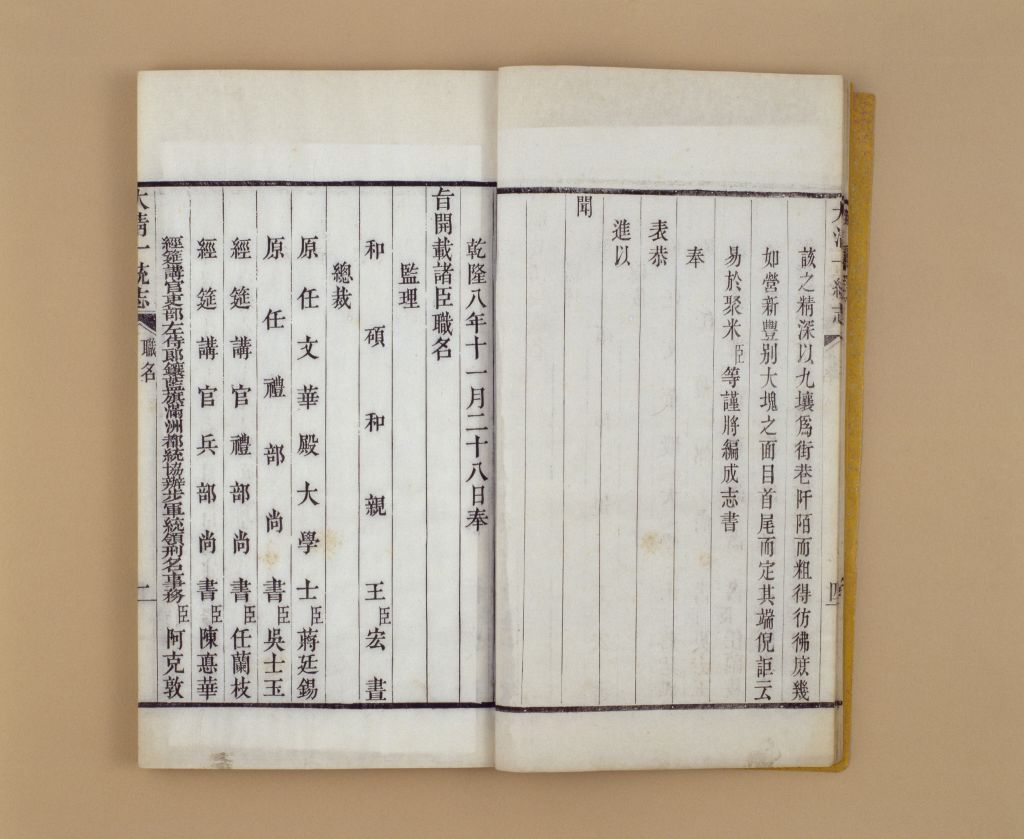 大清一統志
四
該之精深以九壤爲街巷阡陌而粗得彷彿庶幾
如營新豐别大塊之面目首尾而定其端倪詎云
易於聚米臣等謹將編成志書
奉
表恭
進以
聞
乾隆八年十一月二十八日奉
旨開載諸臣職名
監理
和碩和親王臣宏晝
總裁
原任文華殿大學士臣蔣廷錫
原任禮部尚書臣吳士玉
經筵講官禮部尚書臣任蘭枝
經筵講官兵部尚書臣陳惪華
經筵講官吏部左侍郎鑲藍旗滿洲都統協辦步軍統領刑名事務臣阿克敦
大清一統志
職名
一